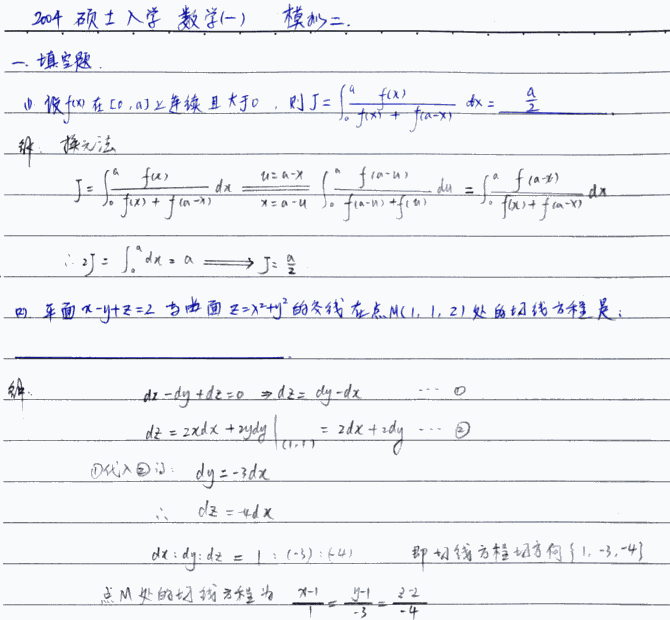 2004 硕士入学 数学(一) 模拟二.
一. 填空题.
(1) 设f(x) 在[0,a]上连续且大于0, 则 J=∫₀ᵃ f(x)/(f(x)+f(a-x)) dx = a/2
解: 换元法
J=∫₀ᵃ f(x)/(f(x)+f(a-x)) dx =(u=a-x, x=a-u)= ∫₀ᵃ f(a-u)/(f(a-u)+f(u)) du = ∫₀ᵃ f(a-x)/(f(x)+f(a-x)) dx
∴ 2J=∫₀ᵃ dx = a ⟹ J=a/2
(2) 平面 x-y+z=2 与曲面 z=x²+y² 的交线在点M(1,1,2)处的切线方程是:
解:
dx-dy+dz=0 ⇒ dz=dy-dx ⋯ ①
dz=2xdx+2ydy|(1,1) = 2dx+2dy ⋯ ②
①代入②得: dy=-3dx
∴ dz=-4dx
dx:dy:dz = 1:(-3):(-4) 即切线方程切方向{1,-3,-4}
点M处的切线方程为 (x-1)/1 = (y-1)/-3 = (z-2)/-4